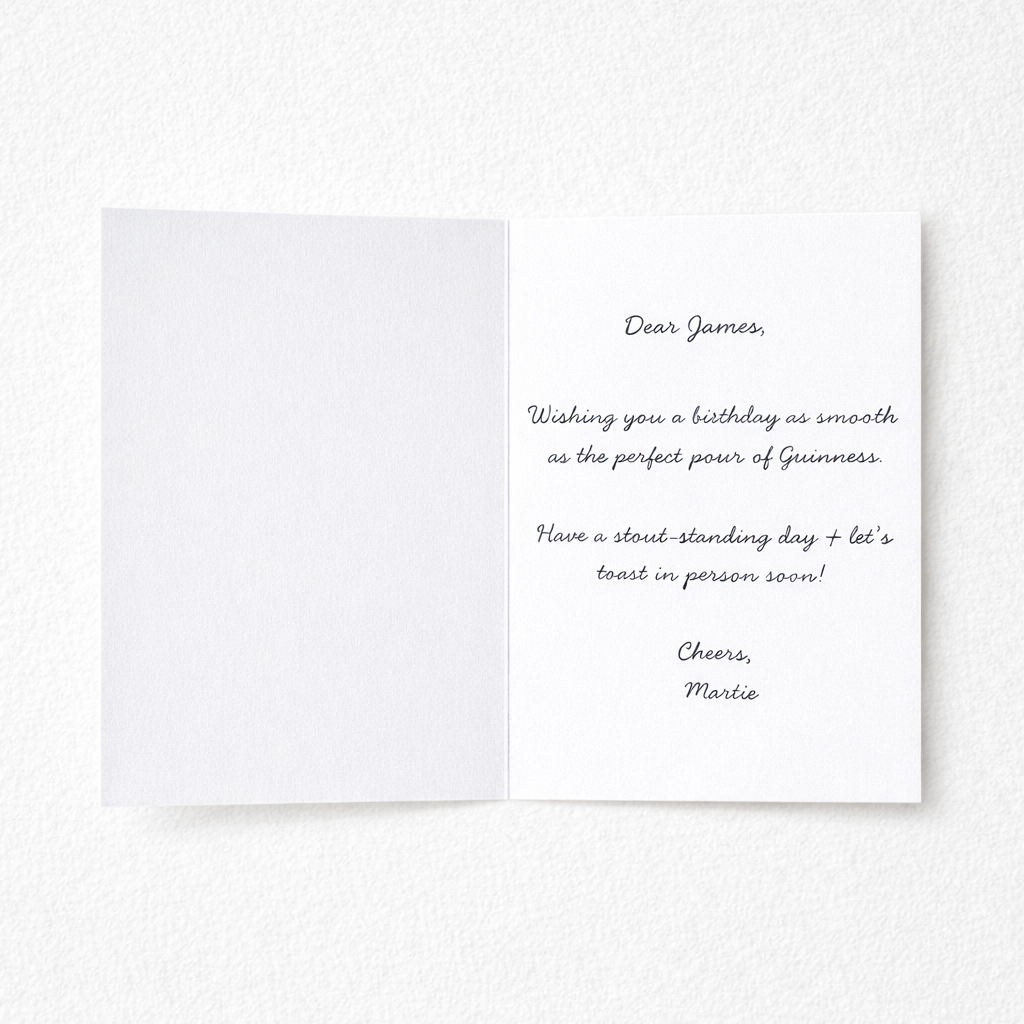 Dear James,
Wishing you a birthday as smooth
as the perfect pour of Guinness.
Have a stout-standing day + let's
toast in person soon!
Cheers,
Martie